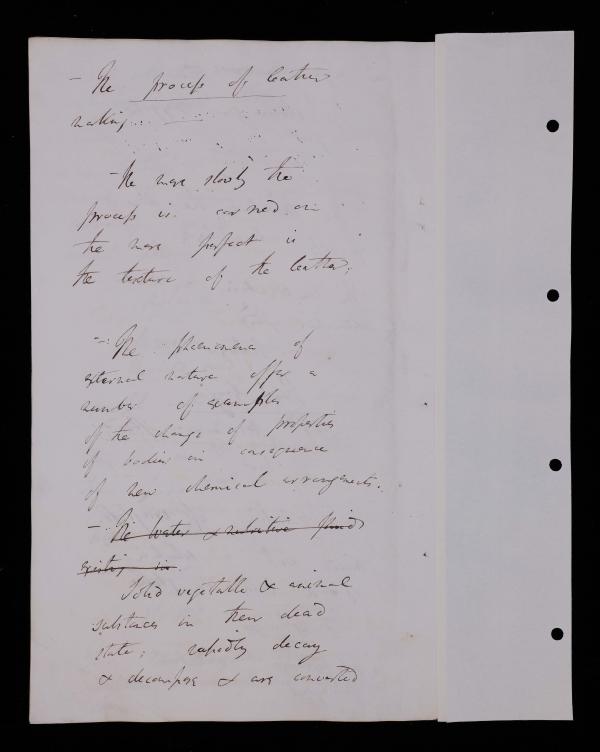 - The process of leather
making.
- The more slowly the
process is carried on
the more perfect is
the texture of the leather;
- The phenomena of
external nature offer a
number of examples
of the change of properties
of bodies in consequence
of new chemical arrangements.
- The water & nutritive fluids
existing in
Solid vegetable & animal
substances in their dead
state; rapidly decay
& decompose & are converted